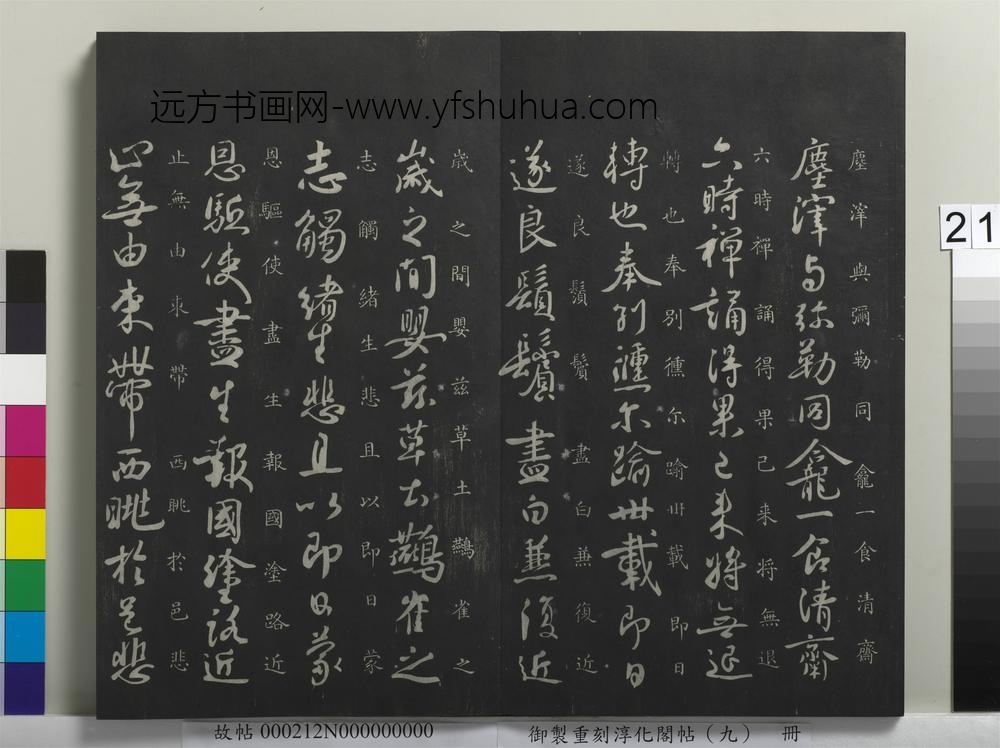 远方书画网-www.yfshuhua.com
塵滓與彌勒同龕一食清齋
塵滓与弥勒同龕一食清齋
六時禪誦得果已来将無退
六時禅誦得果已来将无退
轉也奉別㣪尔踰卌載即日
轉也奉別㣪尔踰卌載即日
遂良鬚鬢盡白蒹復近
遂良鬚鬢盡白蒹復近
歲之間嬰兹草土鷰雀之
歲之間嬰兹草土鷰雀之
志觸緒生悲且以即日蒙
志觸緒生悲且以即日蒙
恩驅使盡生報國塗路近
恩駈使盡生報國塗路近
止無由束帶西眺於邑悲
止無由束帶西眺於邑悲
21
故帖 000212N000000000
御製重刻淳化閣帖（九） 冊